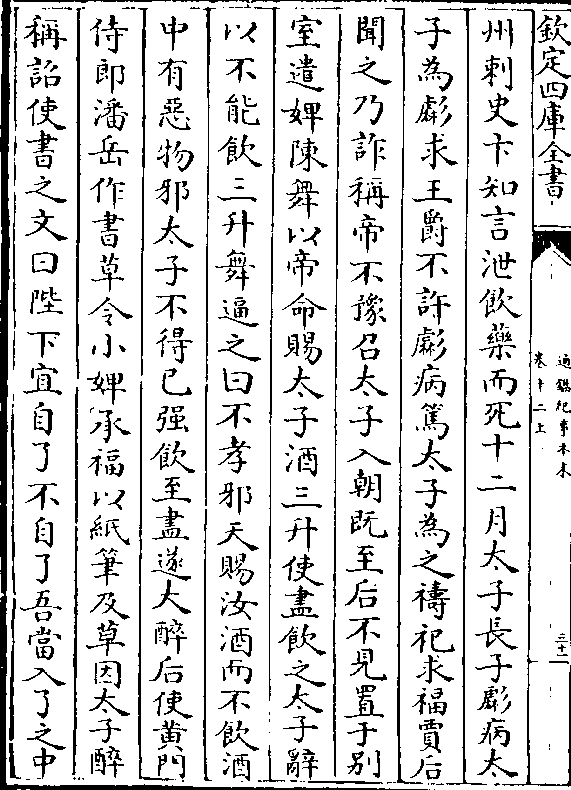 欽定四庫全書
通鑑紀事本末
卷十二上
三十二
州刺史卞知言泄飲藥而死十二月太子長子虨病太
子為虨求王爵不許虨病篤太子為之禱祀求福賈后
聞之乃詐稱帝不豫召太子入朝既至后不見置于别
室遣婢陳舞以帝命賜太子酒三升使盡飲之太子辭
以不能飲三升舞逼之曰不孝邪天賜汝酒而不飲酒
中有惡物邪太子不得已强飲至盡遂大醉后使黄門
侍郎潘岳作書草令小婢承福以紙筆及草因太子醉
稱詔使書之文曰陛下宜自了不自了吾當入了之中